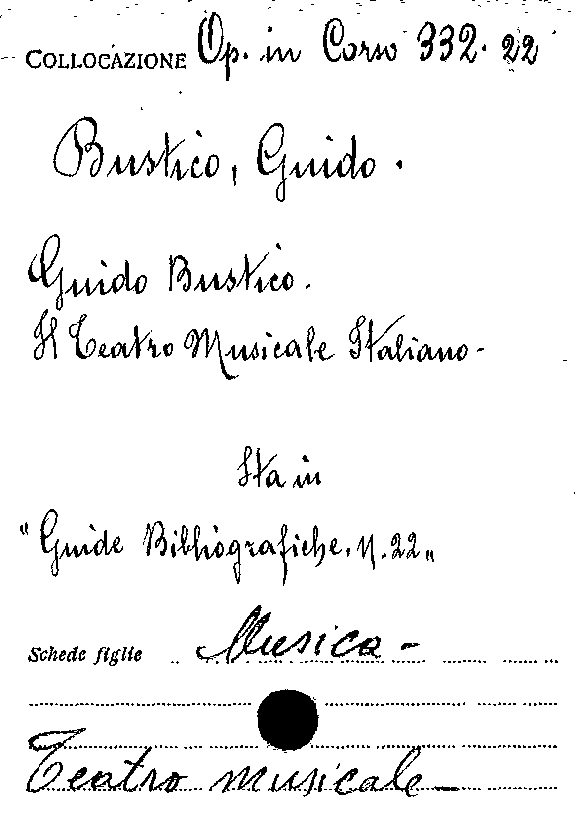 COLLOCAZIONE Op. in Corso 332. 22
Bustico, Guido.
Guido Bustico.
Il Teatro Musicale Italiano-
Sta in
"Guide Bibliografiche. N. 22"
Schede figlie Musica-
Teatro musicale-